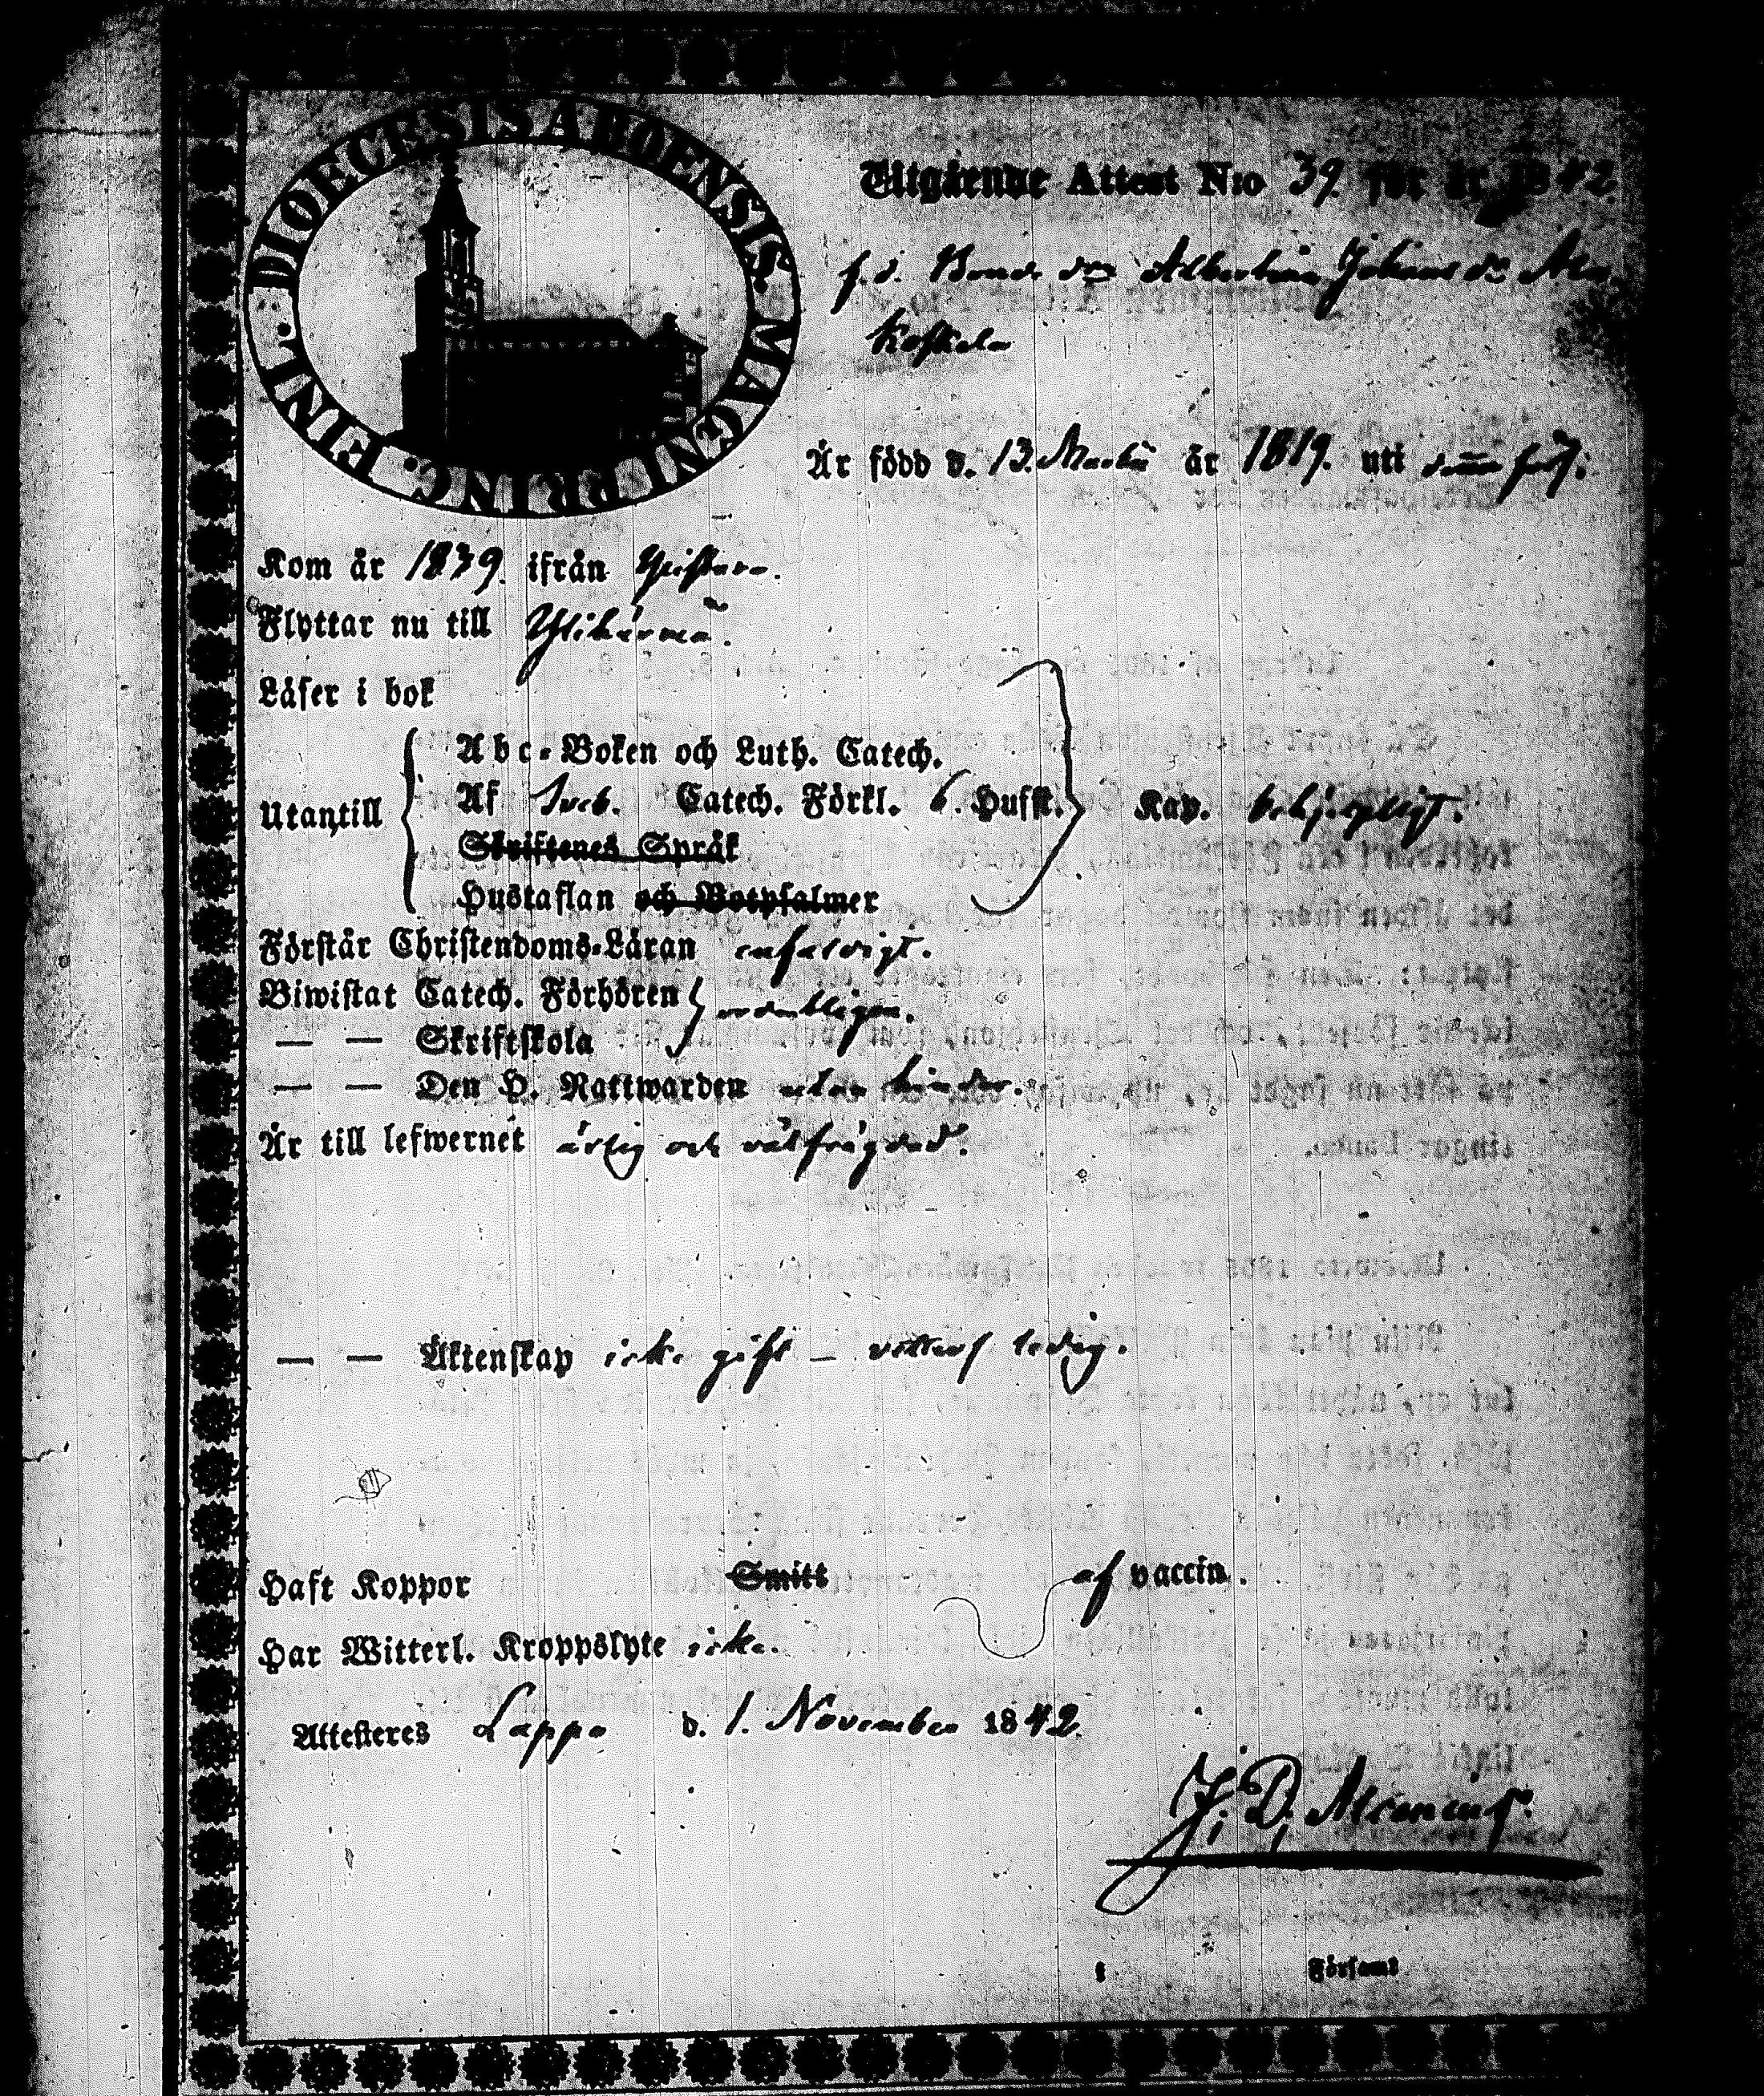 DIOECESIS ABOENSIS. MAGNI PRINC. FINL.
Utgående Attest N:o 39. för år 1842
f. d. Bonde Albertina Johans
Koskela
Är född d. 13. Martii år 1819. uti
Kom år 1839. ifrån Ylistaro.
Flyttar nu till Ylihärmä.
Läser i bok
Abc-Boken och Luth. Catech.
Utantill Af Sveb. Catech. Förkl. 6. Hufst. Kap. behjelpligt.
Skriftenes Språk
Hustaflan och Botpsalmer
Förstår Christendoms-Läran enfaldigt.
Biwistat Catech. Förhören ordentligen.
— — Skriftskola
— — Den H. Nattwarden utan hinder.
Är till lefwernet ärlig och välfrägdad.
— — Äktenskap icke gift — ledig.
Haft Koppor Smitt af vaccin.
Har Witterl. Kroppslyte icke.
Attesteres Lappo d. 1. November 1842.
J. D. Alcenius.
Församl